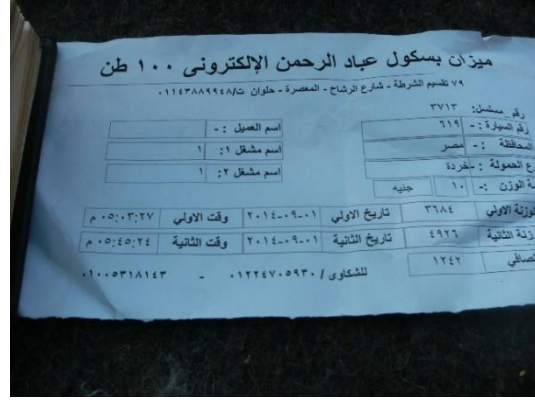 ميزان بسكول عباد الرحمن الإلكترونى ١٠٠ طن
٧٩ تقسيم الشرطة - شارع الرشاح - المعصرة - حلوان ت/٠١١٤٣٨٨٩٩٤٨
رقم مسلسل: ٣٧١٣
رقم السيارة :- ٦١٩ اسم العميل :- -
المحافظة :- مصر اسم مشغل ١: ١
ع الحمولة :- خردة اسم مشغل ٢: ١
ة الوزن :- ١٠ جنيه
وزنة الاولي ٣٦٨٤ تاريخ الاولي ٢٠١٤-٠٩-٠١ وقت الاولي ٠٥:٠٣:٢٧ م
زنة الثانية ٤٩٢٦ تاريخ الثانية ٢٠١٤-٠٩-٠١ وقت الثانية ٠٥:٤٥:٢٤ م
صافي ١٢٤٢
للشكاوى / ٠١٢٢٤٧٠٥٩٣٠ - ٠١٠٠٥٣١٨١٤٣